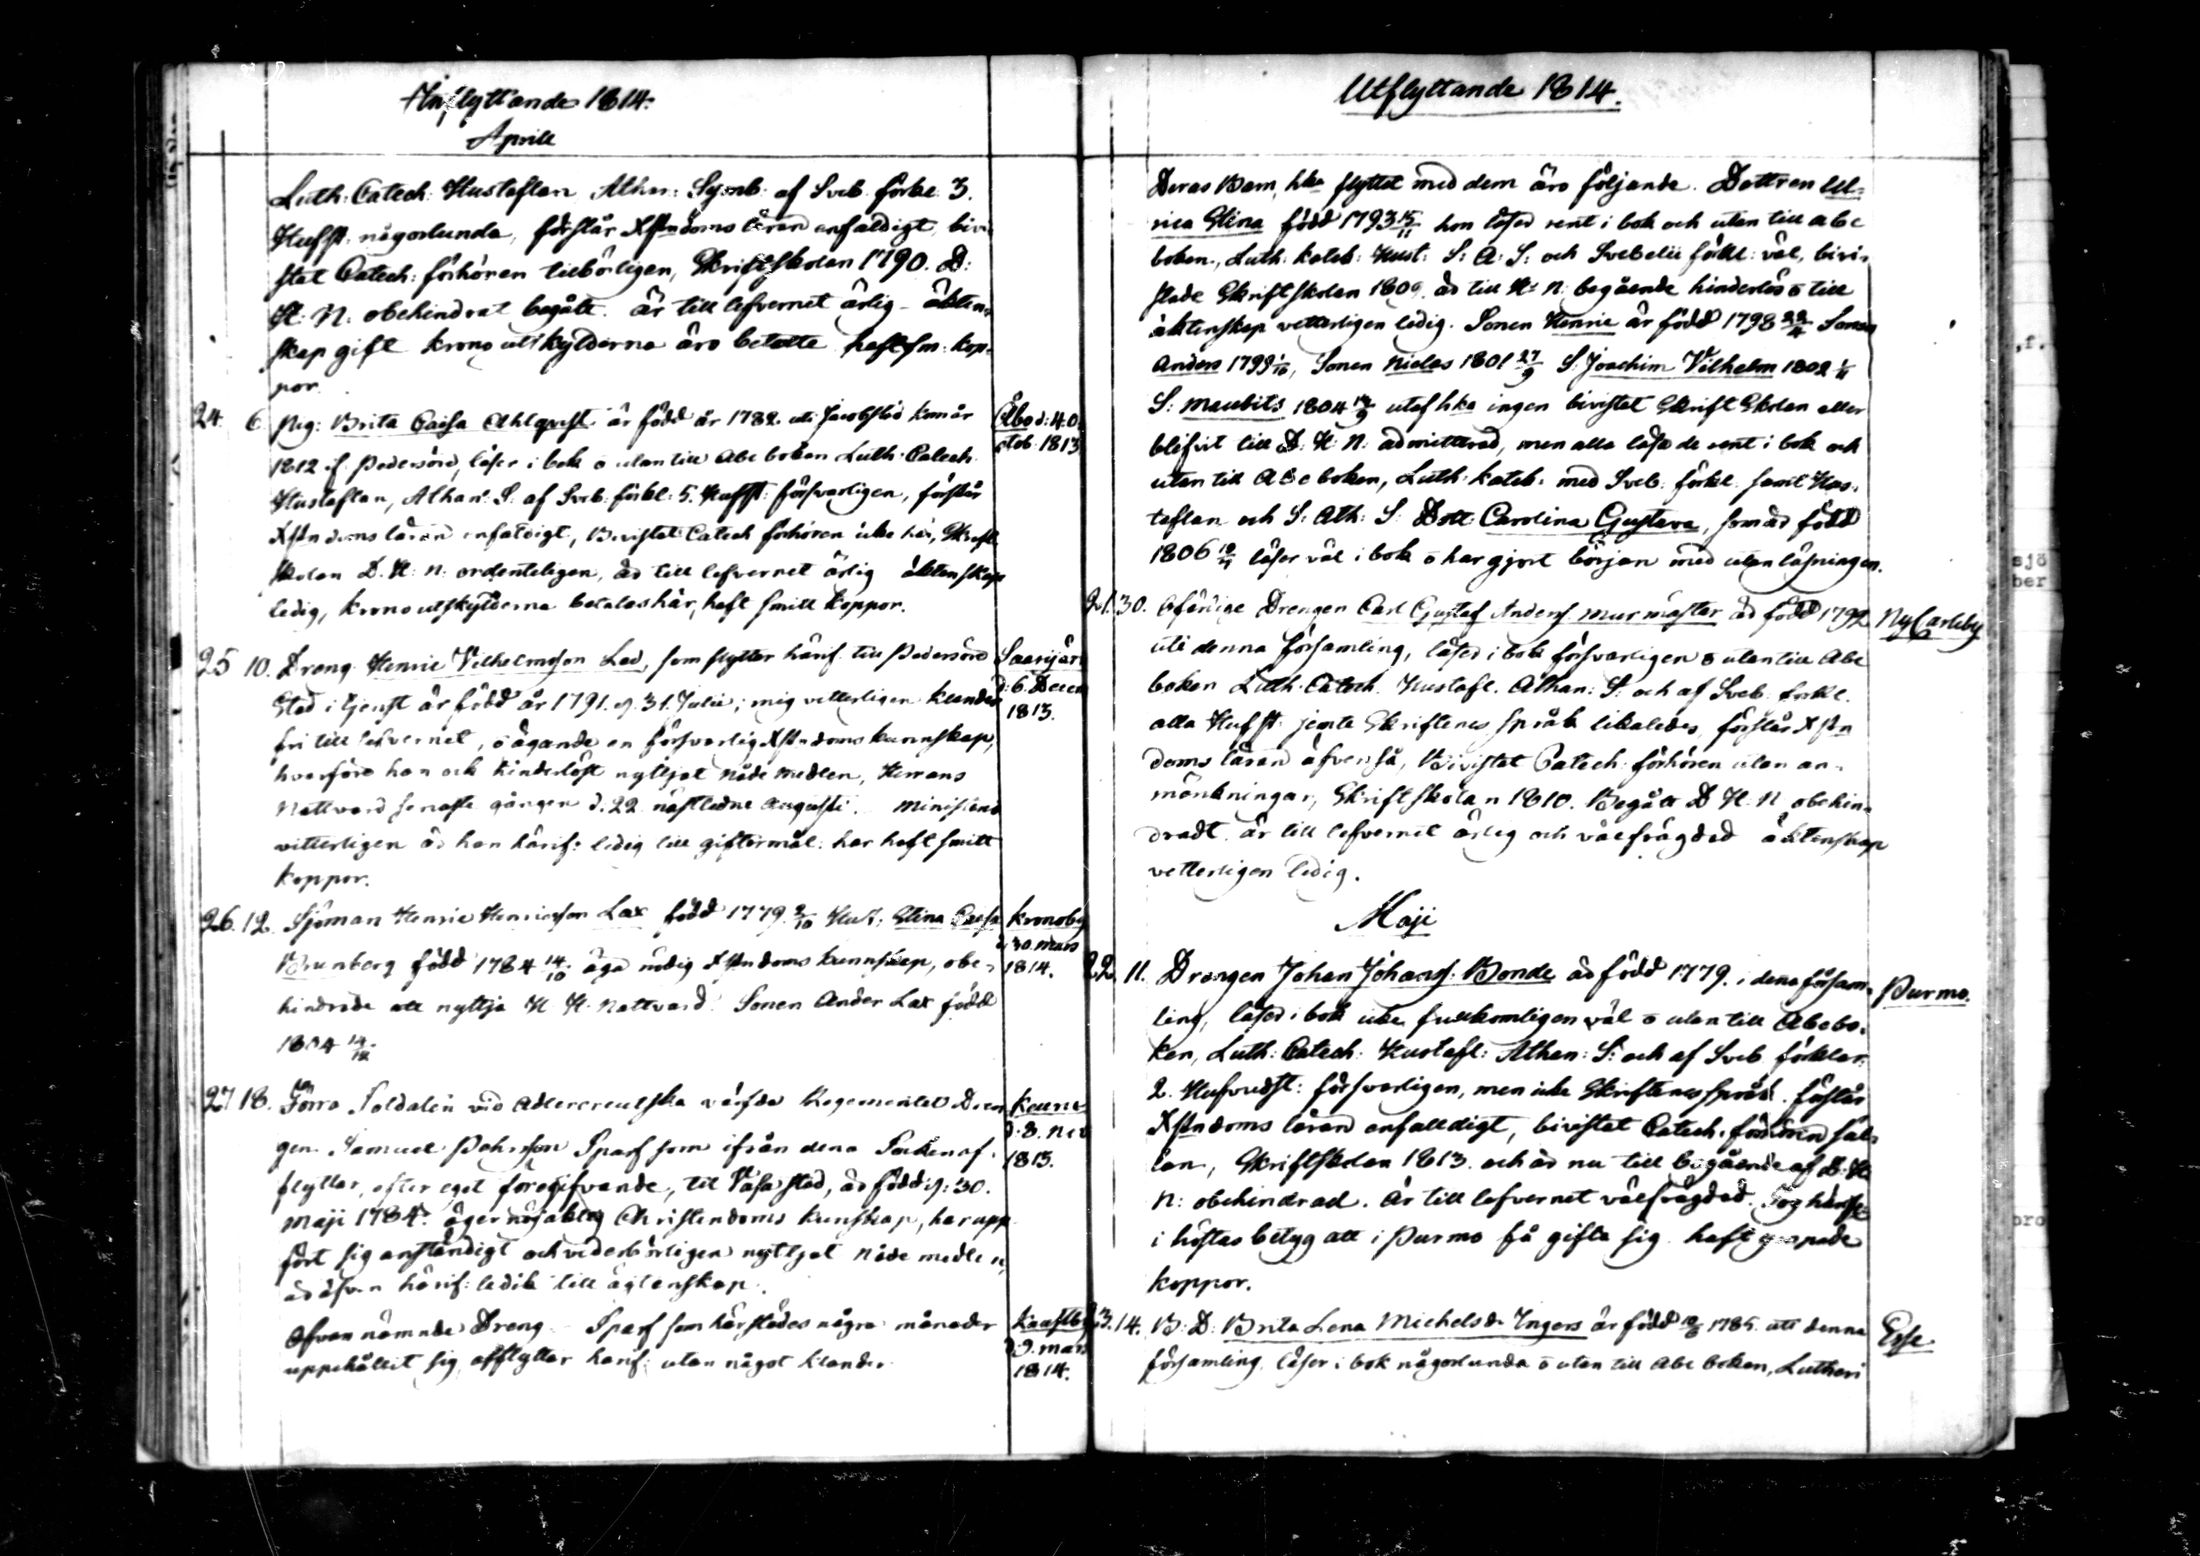 Inflyttande 1814.
Aprill
Luth: Catech: Hustaflan, Athan: Symb: af Sveb. förkl. 3.
Hufst. någorlunda, förstår Xstndoms läran enfaldigt, bivi-
stat Catech: förhören tilbörligen, Skriftskolan 1790. D:
H: N: obehindrat begått. är till lefvernet ärlig - äkten-
skap gift krono utskylderna äro betalte haft sm: kop-
por.
24. 6. Pig: Brita Caisa Ahlqvist är född år 1782. uti Jacobstad kom år
Åbo d: 4. O
ctob. 1813
1812 if. Pedersöre, läser i bok o utan till Abc boken Luth: Catech.
Hustaflan, Athan: S: af Sveb: förkl: 5. Hufst: försvarligen, förstår
Xstndoms läran enfaldigt, Bevistat Catech förhören icke här, Skrift
skolan D. H: N: ordenteligen, är till lefvernet ärlig äktenskap
ledig, krono utskylderna betalas här, haft smitt koppor.
25 10. Dräng Henric Vilhelmsson Lad, som flytter härif. till Pedersöre
Saarijärvi
d: 6. Decem
1813.
Stad i tjenst är född år 1791. d. 31. Julii; mig vetterligen klander
fri till lefvernet, o ägande en försvarlig Xstndoms kunnskap,
hvarföre han ock hinderlöst nyttjat Nåde medlen, Herrans
Nattvard senaste gången d. 22 nästledne Augusti.
vitterligen är han härif: ledig till giftermål: har haft smitt
koppor.
26. 12. Sjöman Henric Henricsson Lax född 1779. 2/10 Hust. Stina Caisa
Kronoby
d. 30. Mars
1814.
Brunberg född 1784 14/10 äga nödig Xstndoms kunnskap, obe-
hindrade att nyttja H H. Nattvard. Sonen Ander Lax född
1804 14/12.
27 18. Förra Soldaten vid Adlercreutska värfda Regementet Drän
d. 8. Nov
1813.
gen Samuel Sparf som ifrån dena
flyttar, efter eget föregifvande, til Vasa stad, är född d: 30.
Maji 1784. äger nöjaktig Christendoms kunskap, har upp
fört sig anständigt och vederbörligen nyttjat Nåde medlen,
är äfven härif: ledik till äqtenskap.
Ofvan nämnde Dräng Sparf som härstädes några månader
d 9. mars
1814.
uppehållit sig, afflyttar härif: utan något klander.
Utflyttande 1814.
Deras Barn, hka flyttat med dem äro följande. Dottren Ul-
rica Stina född 1793 15/11 hon läser rent i bok och utan till abc
boken, Luth: katek: Hust: S: A: S: och Svebelii förkl: väl, bivi-
stade Skriftskolan 1809. är till H: N: begående hinderlös o till
äktenskap vetterligen ledig. Sonen Henric är född 1798 22/4 Sonen
Anders 1799 1/10, Sonen Niclas 1801 27/9 S: Joachim Vilhelm 1802 1/11
S: Maubits 1804 utaf hka ingen bivistat Skrift Skolan eller
blifvit till D: H: N: admitterad, men alla läsa de rent i bok och
utan till Abc boken, Luth: katek: med Sveb: förkl: samt Hus-
taflan och S: Ath: S: Dott: Carolina Gustava, som är född
1806 läser väl i bok o har gjort början med utan läsningen.
21. 30. Ofärdige Drengen Carl Gustaf Anders: Murmäster är född 1792
Ny Carleby
uti denna församling, läser i bok försvarligen o utan till Abc
boken Luth: Catech. Hustafl. Athan: S: och af Sveb: förkl.
alla Hufst. jemte Skriftenes språk likaledes, förstår Xstn
doms läran äfvenså, Bivistat Catech: förhören utan an-
märkningar, Skriftskolan 1810. Begått D H. N obehin-
dradt. är till lefvernet ärlig och välfrägdad äktenskap
vetterligen ledig.
Maji
22. 11. Drängen Johan Johans: Bonde är född 1779. i dena försam-
Purmo.
ling, läser i bok icke fullkomligen väl o utan till Abc bo-
ken, Luth: Catech: Hustafl: Athan: S: och af Sveb förklar:
2. Hufvudst: försvarligen, men icke Skriftenes språk. förstår
Xstndoms läran enfalldigt, bivistat Catech. förhören säl-
lan, Skriftskolan 1813. och är nu till begående af D: H:
N: obehindrad. är till lefvernet välfrägdad. Tog härif:
i höstas betyg att i Purmo få gifta sig haft ympade
koppor.
23. 14. B: D: Brita Lena Michelsdr Ingers är född 1785. uti denna
Esse.
församling läser i bok någorlunda o utan till Abc boken, Lutheri